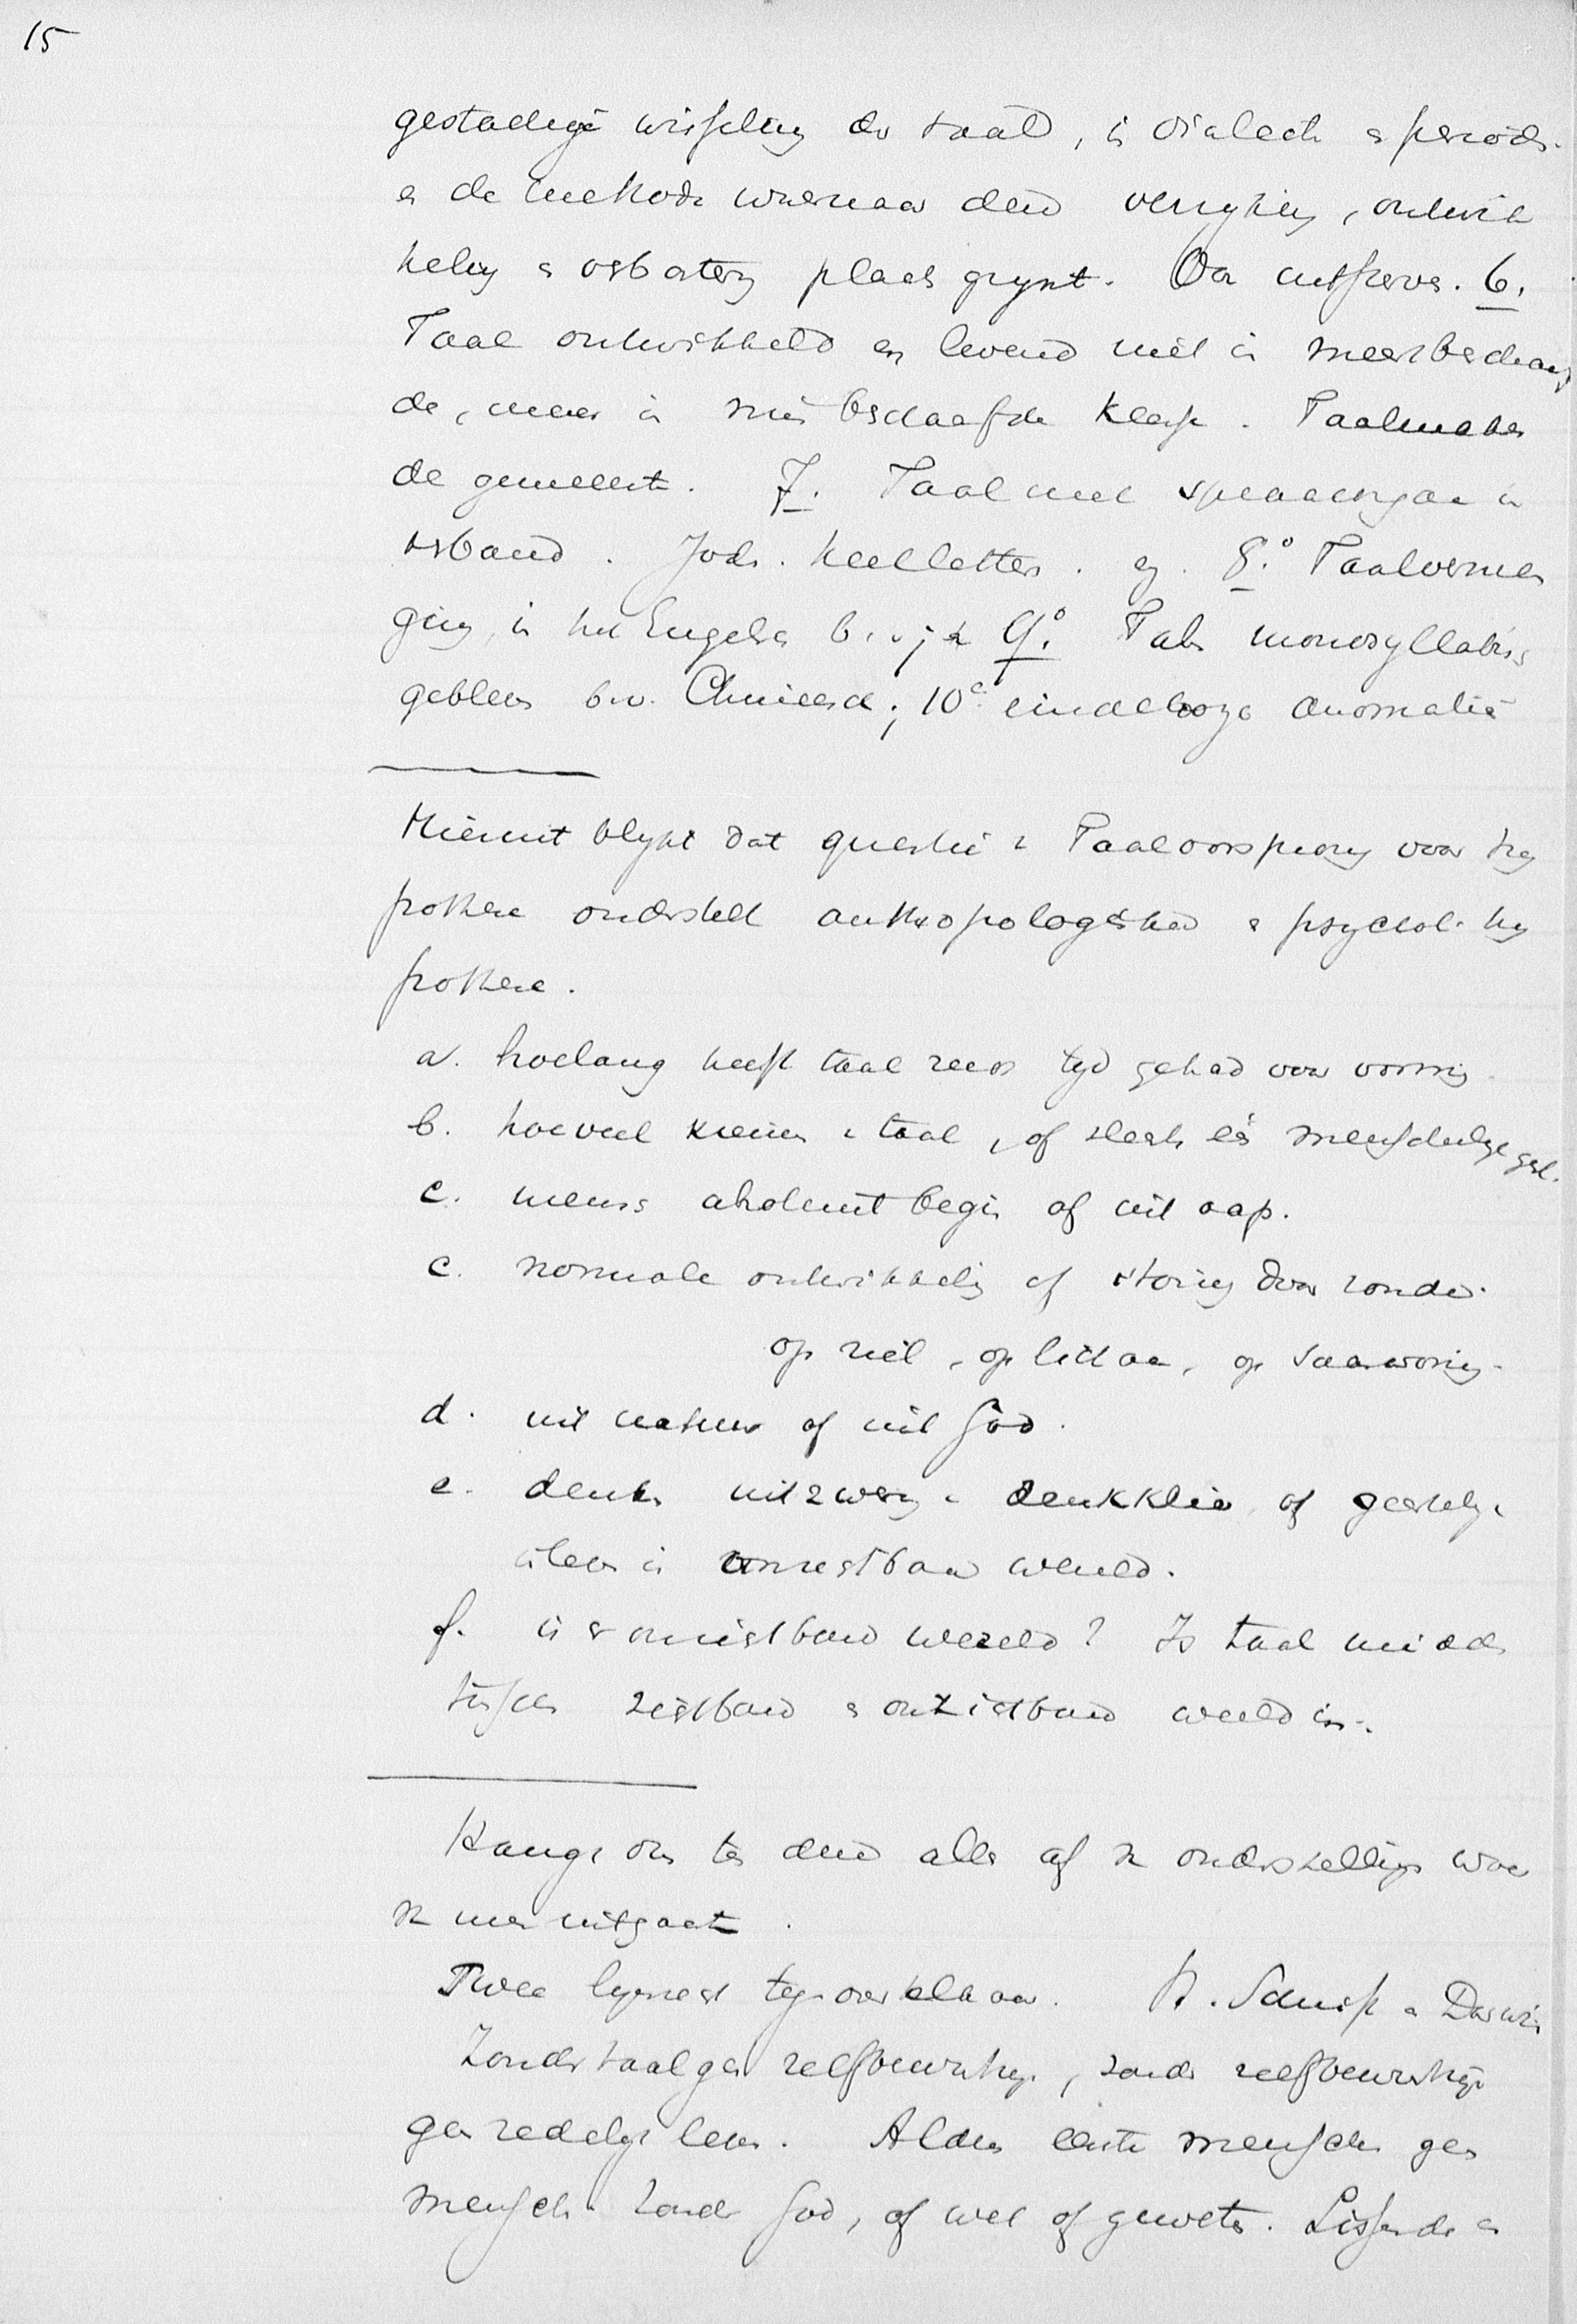 15
gestadige wisseling der taal, in dialect en periode.
en de methode waarnaar deze verryking, ontwik
keling en verbastering plaats grypt. Oa uitsterve. 6.
Taal ontwikkeld en levend niet in meerbeschaaf
de, maar in min beschaafde klasse. Taalmaker
de gemeente. 7. Taal met spraakorgaan in
verband. Jod. keelletters. 8.° Taalvermen
ging, in het Engelsch b.v. 9.° Tale monosyllabisch
gebleven bv. Chineesch; 10e eindelooze anomalie
Hieruit blykt dat questie v Taaloorsprong voor hy
pothese onderstelt anthropologische en psychol. hy
pothese.
a. hoelang heeft taal reeds tyd gehad voor vorming
b. hoeveel kiemen v taal, of slechts één menschelyk gesl.
c. mensch absoluut begin of uit aap.
c. normale ontwikkeling of storing door zonde.
op ziel, op lichaam, op
d. uit natuur of uit God.
e. denken uitzwering v denkklier, of geestelyk
leven in onzichtbare wereld.
f. is er onzichtbare wereld? Is taal middel
tusschen zichtbare en onzichtbare wereld in.
Hangt ons ten deze alles af v onderstelling waar
v men uitgaat.
Twee lynrecht tegenover elkaar. H. Schrift en Darwin
Zonder taal geen zelfbewustzyn, zonder zelfbewustzyn
geen redelyk leven. Aldus eerste menschen geen
menschen zonder God, of wet of geweten. Lispende en